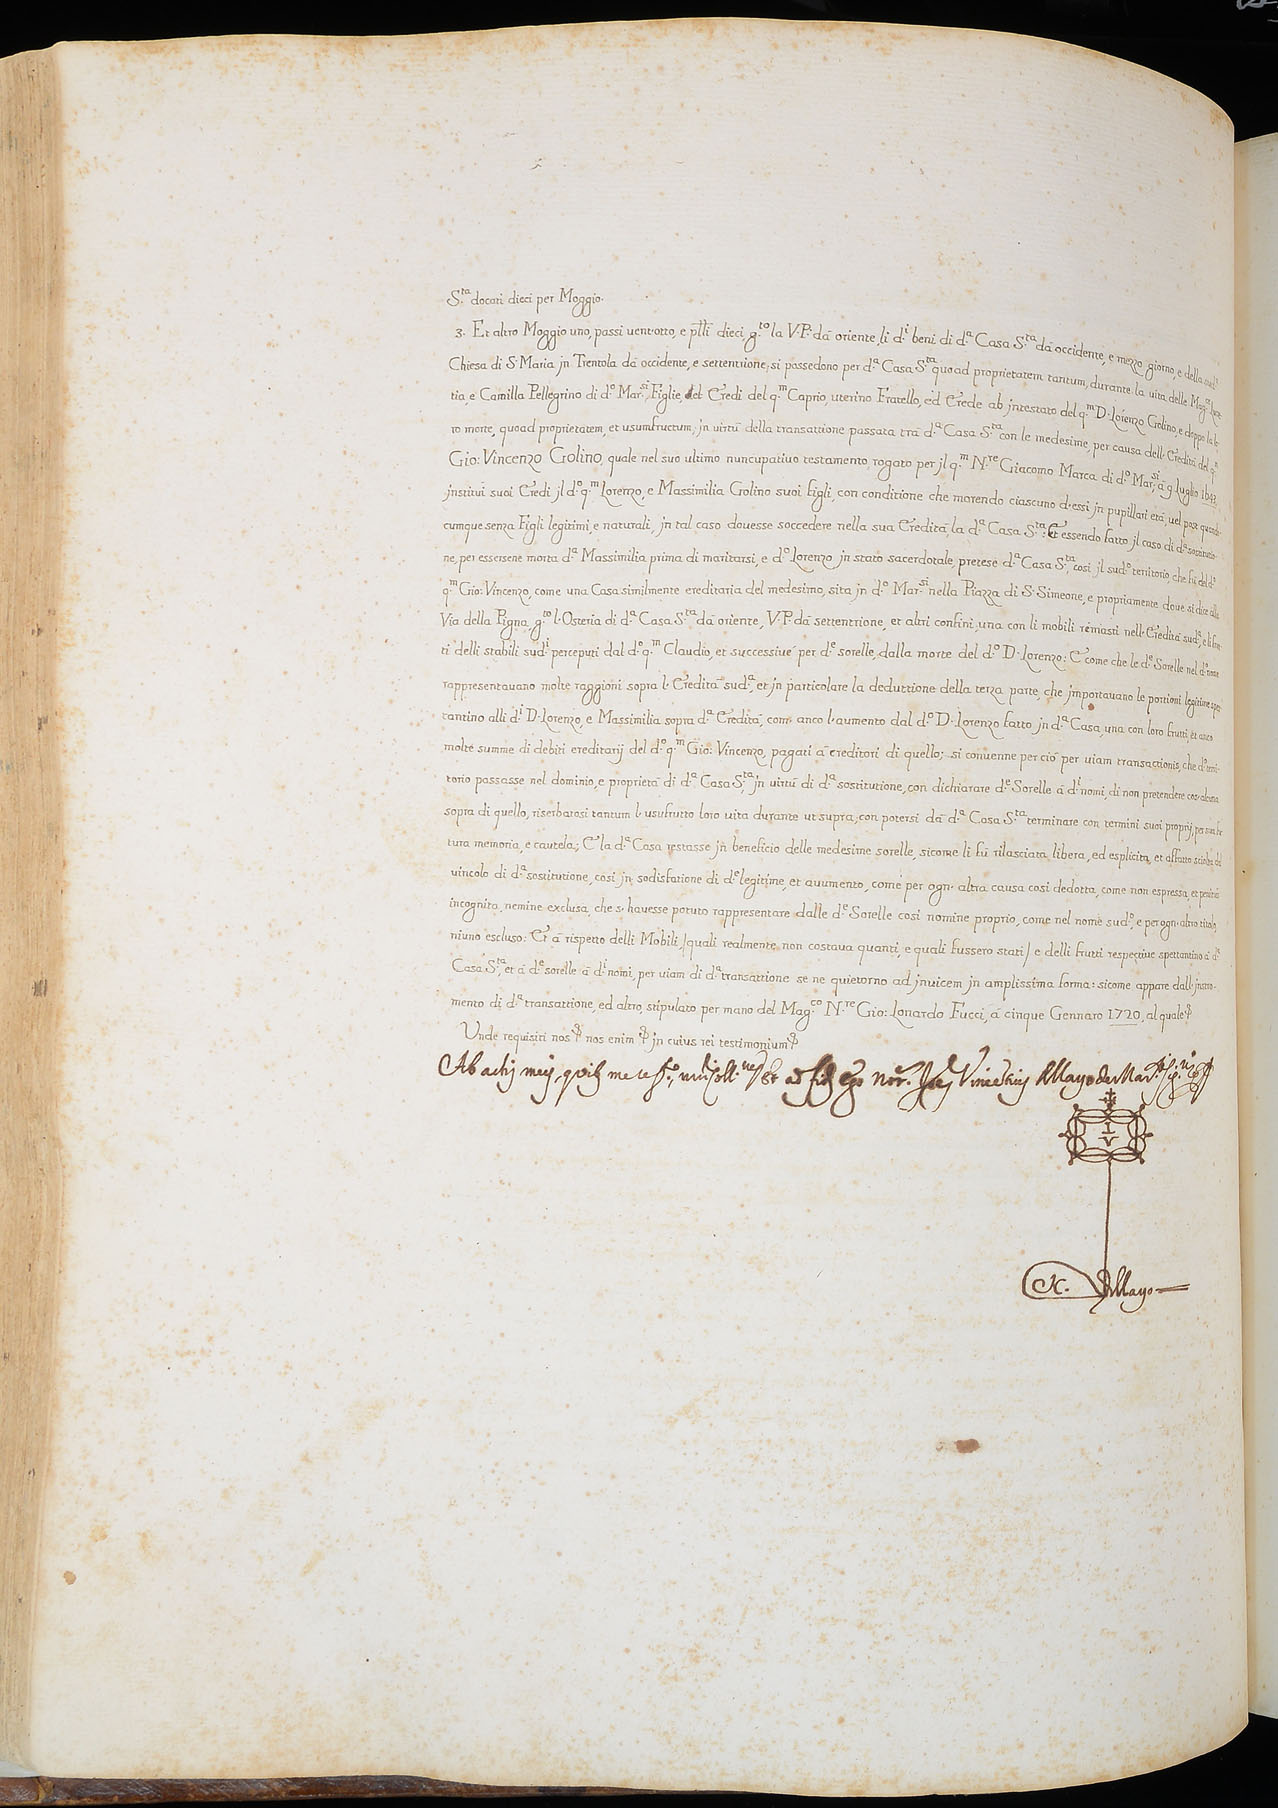 S.ta docati dieci per Moggio.
3. Et altro Moggio uno, passi uent'otto, e p̅lli dieci, g.to la V.P. dà oriente, li d.i beni di d.a Casa S.ta dà occidente, e mezzo giorno, e della sud.a
Chiesa di S. Maria jn Trentola dà occidente, e settentrione; si passedono per d.a Casa S.ta quoad proprietatem tantum, durante la vita delle Mag.e
tia, e Camilla Pellegrino di d.o Mar.si, Figlie, del Eredi del q.m Caprio, uterino Fratello, ed Erede ab jntestato del q.m D. Lorenzo Golino, e doppo la lo-
ro morte, quoad proprietatem, et usumfructum, jn uirtù della transattione passata trà d.a Casa S.ta con le medesime, per causa dell'Eredità del q.m
Gio: Vincenzo Golino, quale nel suo ultimo nuncupatiuo testamento, rogato per jl q.m N.re Giacomo Marca di d.o Mar.si à 9 Luglio
jnstituì suoi Eredi jl d.o q.m Lorenzo, e Massimilia Golino suoi figli, con conditione che morendo ciascuno d'essi jn pupillari età, uel post quando-
cumque senza Figli legitimi, e naturali, jn tal caso douesse soccedere nella sua Eredità, la d.a Casa S.ta: Et essendo fatto jl caso di d.a sostitutio-
ne, per essersene morta d.a Massimilia prima di maritarsi, e d.o Lorenzo jn stato sacerdotale, pretese d.a Casa S.ta, così jl sud.o territorio, che fù del d.o
q.m Gio: Vincenzo, come una Casa similmente ereditaria del medesimo, sita jn d.o Mar.si nella Piazza di S. Simeone, e propriamente doue si dice alla
Via della Pigna, g.to l'Osteria di d.a Casa S.ta dà oriente, V.P. dà settentrione, et altri confini, una con li mobili remasti nell'Eredità sud.a, e li frut-
ti delli stabili sud.i perceputi dal d.o q.m Claudio, et successiuè per d.e sorelle, dalla morte del d.o D. Lorenzo: E come che le d.e Sorelle nel d.o nome
rappresentauano molte raggioni sopra l'Eredità sud.a, et jn particolare la deduttione della terza parte, che jmportauano le portioni legitime spet-
tantino alli d.i D. Lorenzo, e Massimilia sopra d.a Eredità, com'anco l'aumento dal d.o D. Lorenzo fatto jn d.a Casa, una con loro frutti, et anco
molte summe di debiti ereditarij del d.o q.m Gio: Vincenzo, pagati à creditori di quello; si conuenne per ciò per uiam transactionis, che d.o terri-
torio passasse nel dominio, e proprietà di d.a Casa S.ta, jn uirtù di d.a sostitutione, con dichiarare d.e Sorelle à d.i nomi, di non pretendere cos'alcuna
sopra di quello, riserbarosi tantum l'usufrutto loro uita durante ut supra; con potersi dà d.a Casa S.ta terminare con termini suoi proprij, per sua fu-
tura memoria, e cautela; E la d.a Casa restasse jn beneficio delle medesime sorelle, sicome li fù rilasciata libera, ed esplicita, et affatto sciolta dal
uincolo di d.a sostitutione, così jn sodisfatione di d.e legitime, et auumento, come per ogn'altra causa così dedotta, come non espressa, et penitùs
incognita, nemine exclusa, che s'hauesse potuto rappresentare dalle d.e Sorelle così nomine proprio, come nel nome sud.o, e per ogn'altro titolo,
niuno escluso: Et à rispetto delli Mobili, /quali realmente non costaua quanti, e quali fussero stati/ e delli frutti respectiue spettantino à d.a
Casa S.ta, et à d.e sorelle à d.i nomi, per uiam di d.a transattione se ne quietorno ad jnuicem jn amplissima forma: sicome appare dall'jnstro-
mento di d.a transattione, ed altro, stipulato per mano del Mag.co N.re Gio: Lonardo Fucci, à cinque Gennaro 1720, al quale
Unde requisiti nos nos enim jn cuius rei testimonium
Ab actis meis, ego Not. Vincentius de Mayo de Mar.
I V
N. de Mayo